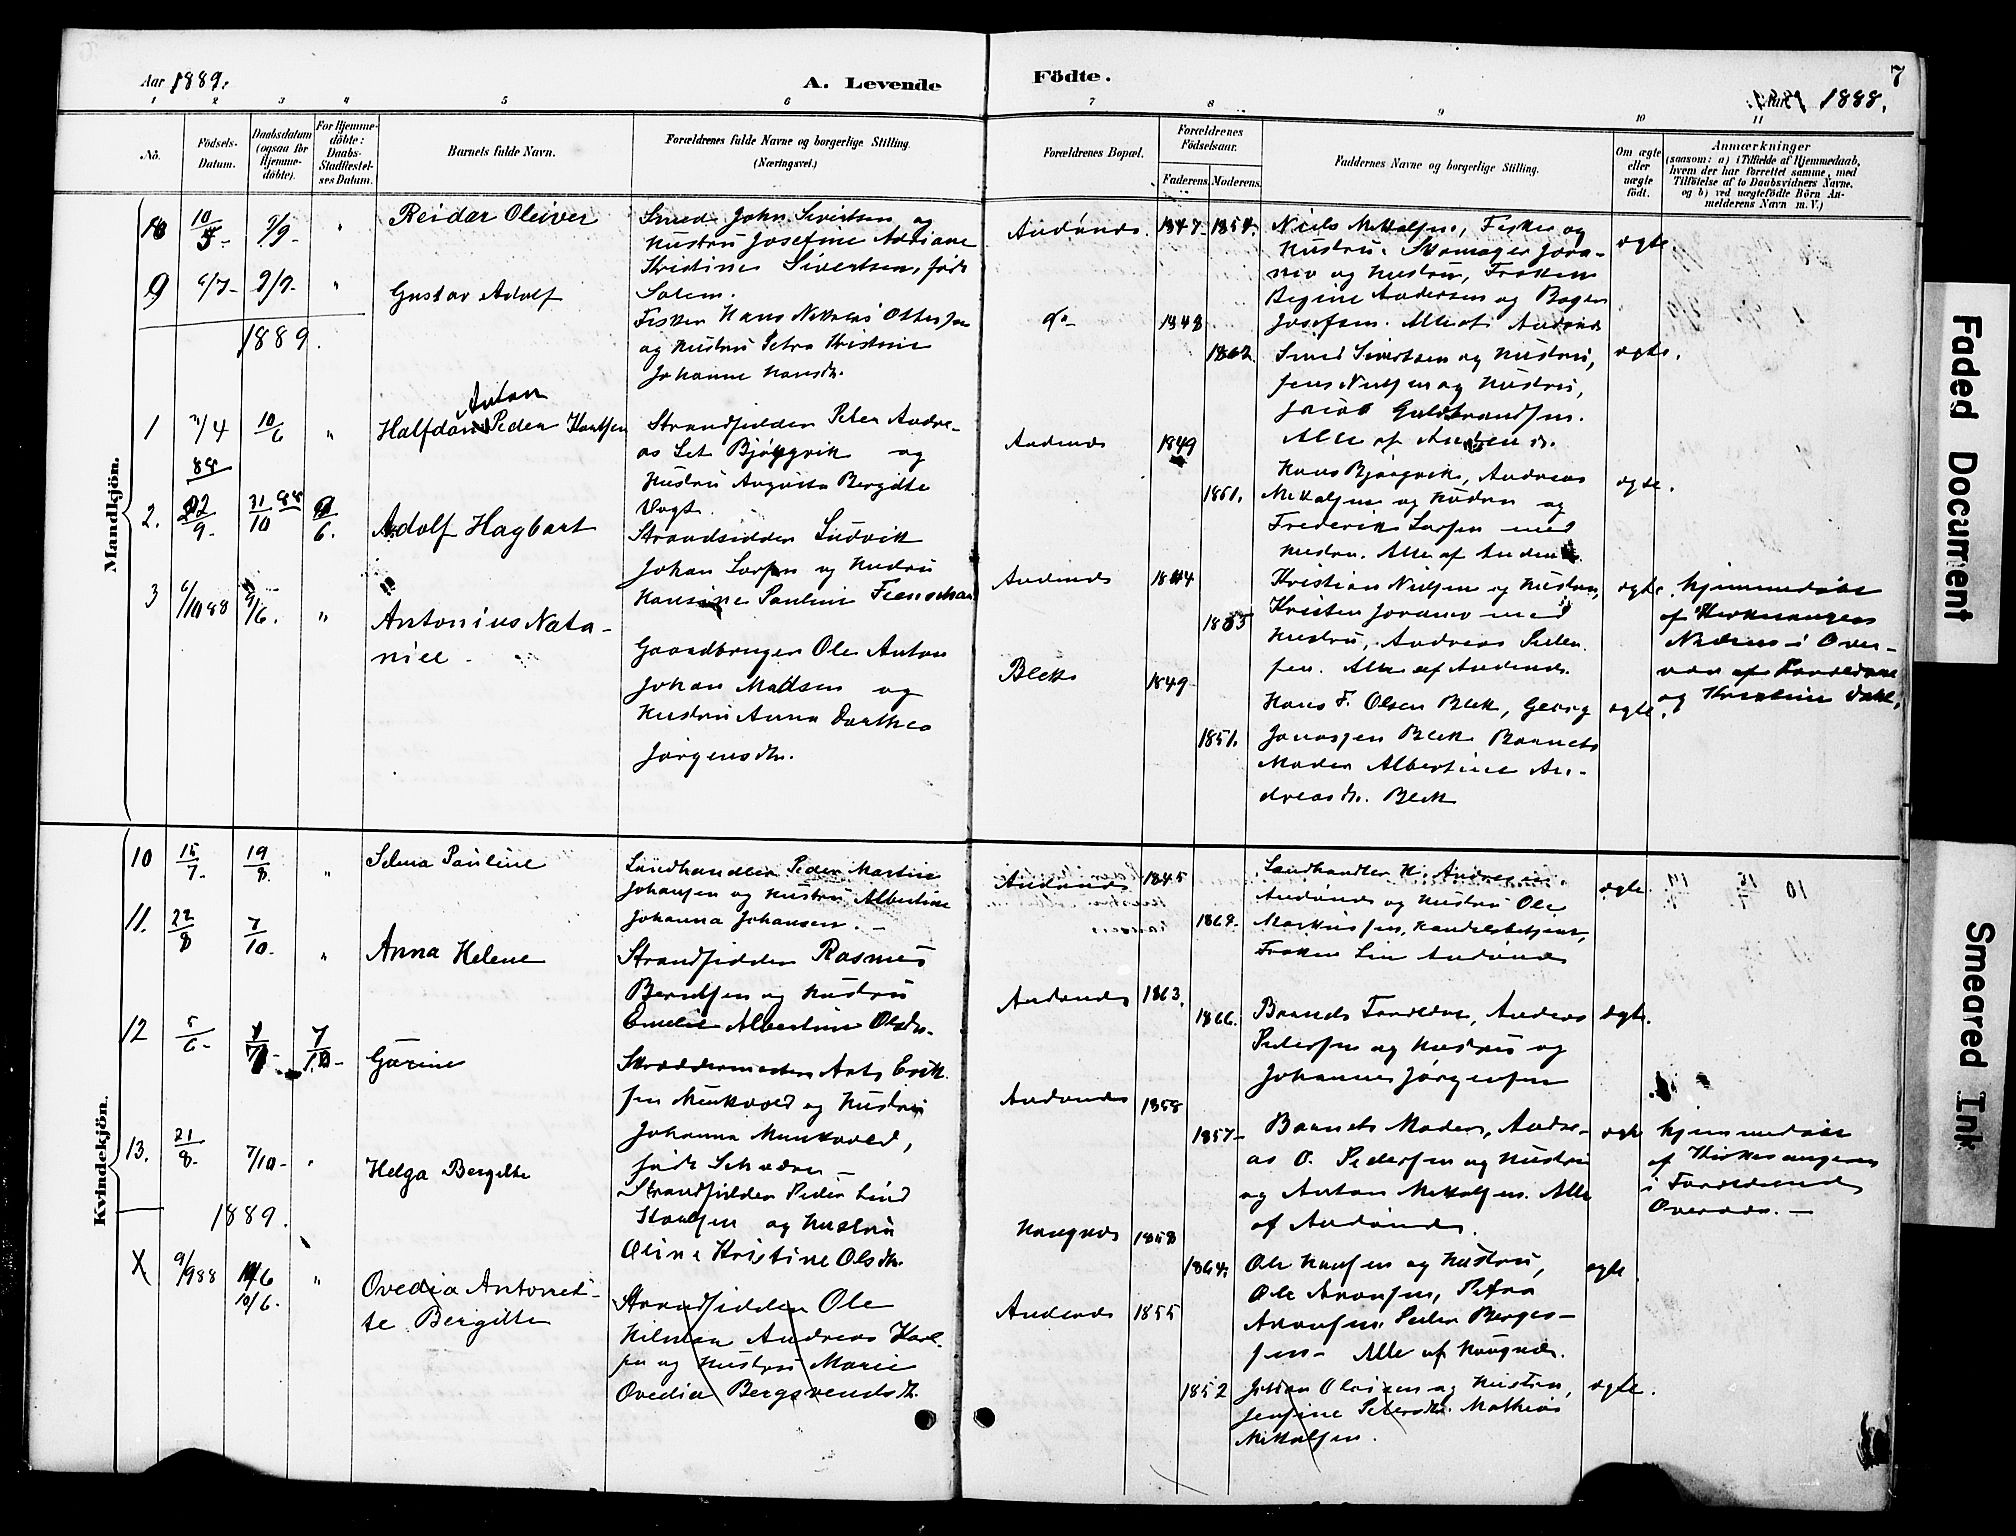 Aar 1889.
A. Levende
Födte.
7
1888.
1 2 3 4 5 6 7 8 9 10 11
No.
Födsels-
Datum.
Daabsdatum
(ogsaa för
Hjemme-
döbte).
For Hjemme-
döbte:
Daabs-
Stadfæstel-
ses Datum.
Barnets fulde Navn.
Forældrenes fulde Navne og borgerlige Stilling.
(Næringsvei.)
Forældrenes Bopæl.
Forældrenes
Födselsaar.
Faderens. Moderens.
Faddernes Navne og borgerlige Stilling.
Om ægte
eller
uægte
födt.
Anmærkninger
(saasom: a) i Tilfælde af Hjemmedaab,
hvem der har forrettet samme, med
Tilföielse af to Daabsvidners Navne,
og b) ved uægtefödte Börn An-
melderens Navn m. V.)
Mandkjön.
10/5- 9/9- "
Reidar Oleiver
Smed John Sivertsen og
Hustru Josefine Adriane
Kristine Sivertsen, født
Salem.
Andønæs 1847- 1854.
Niels Mikkalsen, Fisker og
Hustru. Skomager Jora-
mo og Hustru, Frøken
Regine Andersen og Roger
Josefsen. Alle af Andenæs
ægte
9 6/7- 2/9- "
Gustav Adolf
Fisker Hans Nikolai Ottesen
og Hustru Petra Kristine
Johanne Hansdtr.
do- 1848 1862.
Smed Sivertsen og Hustru,
Jens Nielsen og Hustru,
Jacob Guldbrandsen.
Alle af Andenes.
ægte.
1889.
1 /4 88 10/6 "
Halfdan Anton Peder Knutsen
Strandsidder Peter Andre-
as Let Bjørgvik og
Hustru Augusta Bergitte
Vogt.
Andenæs 1849 1861.
Hans Bjørgvik, Andreas
Mikkalsen og Hustru og
Frederik Larsen med
Hustru. Alle af Andenæs.
ægte.
2. 22/9. 31/10 88 /6.
Adolf Hagbart
Strandsidder Ludvik
Johan Larsen og Hustru
Hansine Pauline
Andenæs 1844 1855
Kristian Nielsen og Hustru,
Kristen Joramo med
Hustru, Andreas Peder-
sen. Alle af Andenæs.
ægte.
Hjemmedøbt
af Kirkesangeren
i Over-
vær af Forældrene
og Kristine Dahl.
3 6/10 88 9/6. "
Antonius Nata-
niel.
Gaardbruger Ole Anton
Johan Madsen og
Hustru Anna Dorthea
Jørgensdtr.
Bleik 1849- 1851.
Hans F. Olsen Bleik, Georg
Jonassen Bleik Barnets
Moder Albertine An-
dreasdtr. Bleik
ægte.
Kvindekjön.
10 15/7. 19/8. "
Selma Pauline
Landhandler Peder Martin
Johansen og Hustru Albertine
Johanna Johansen.
Andenæs 1845 1869.
Landhandler H. Andresen
Andenæs og Hustru Ole
Markussen, Handelsbetjent,
Frøken Lie Andenæs
ægte.
11. 22/8 7/10. "
Anna Helene
Strandsidder Rasmus
Berntsen og Hustru
Emelie Albertine Olsdtr.
Andenæs 1863. 1866.
Barnets Forældre, Andreas
Pedersen og Hustru og
Johannes Jørgensen
ægte.
12 5/6- 7/10-
Gurine
Skræddermester Erik-
sen Munkvold og Hustru
Johanna Munkvold,
født
Andenæs 1858 1857-
Barnets Moder, Andre-
as O. Pedersen og Hustru
og Anton Mikkalsen. Alle
af Andenæs.
ægte
Hjemmedøbt
af Kirkesangeren
i Forældrenes
Overvær. -
13. 21/8. 7/10- "
Helga Bergitte
Strandsidder Peder Lind
og Hustru
Oline Kristine Olsdtr.
Haugnæs 1858 1864.
Ole Hansen og Hustru,
Ole Aronsen, Petra
Aronsen. Peder Berges-
sen- Alle af Haugnæs.
ægte
1889.
X 9/9 88 10/6. "
Ovedia Antonet-
te Bergitte
Strandsidder Ole
Hilman Andreas Karl-
sen og Hustru Marie
Ovedia Bergsvendsdtr.
Andenæs 1855 1852
Johan Olsen og Hustru,
Jensine Petersdtr. Mathias
Mikkalsen.
ægte.
Faded Document
Smeared Ink